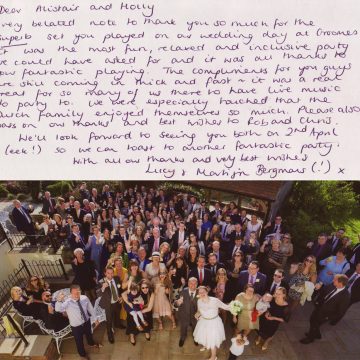 Dear Alistair and Holly
very belated note to thank you so much for the
superb set you played on our wedding day at Groomes
it was the most fun, relaxed and inclusive party
we could have asked for and it was all thanks to
your fantastic playing. The compliments for you guys
are still coming in thick and fast - it was a real
treat for so many of us there to have live music
to party to. We were especially touched that the
family enjoyed themselves so much. Please also
pass on our thanks and best wishes to Rob and Chris.
We'll look forward to seeing you both on 2nd April
(eek!) so we can toast to another fantastic party.
With all our thanks and very best wishes
Lucy & Martijn Bergmans (!) x